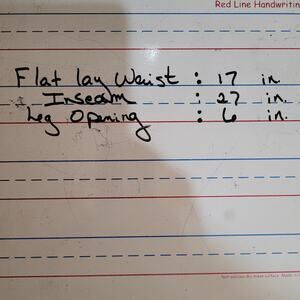 Red Line Handwritin
Flat lay Waist : 17 in
Inseam : 27 in.
Leg Opening : 6 in.